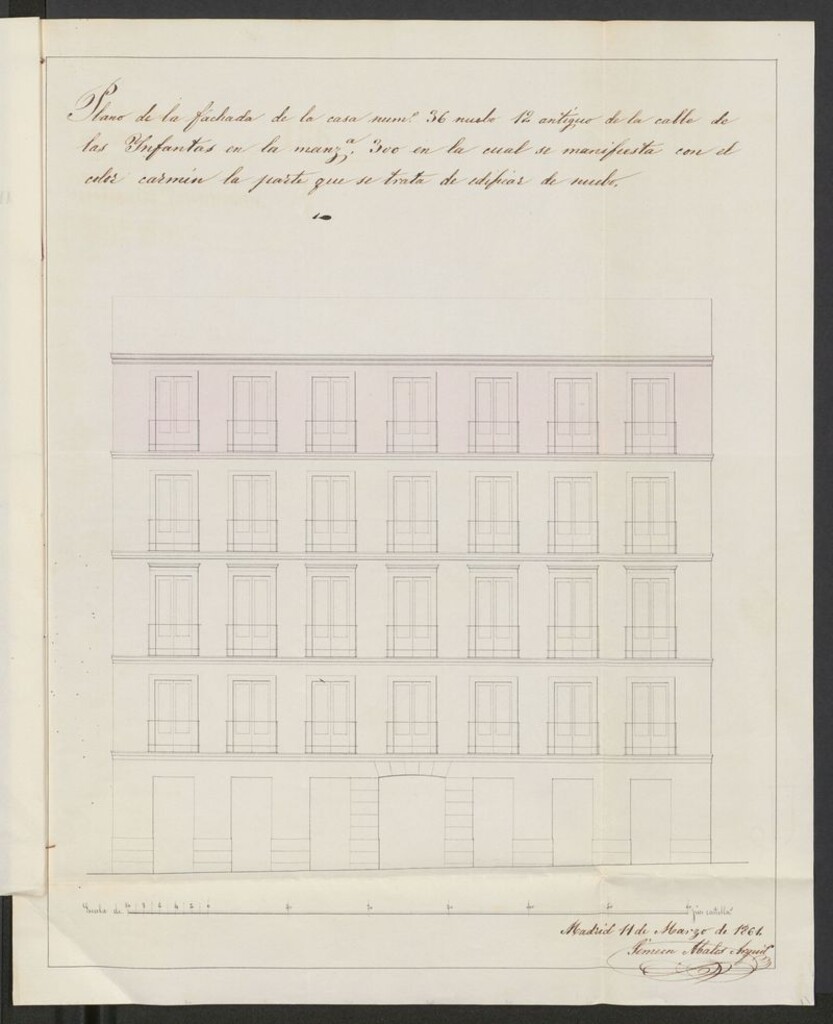 Plano de la fachada de la casa num.º 36 nuebo 12 antiguo de la calle de
las Infantas en la manz.ª 300 en la cual se manifiesta con el
color carmin la parte que se trata de edificar de nuebo.
Escala de 10 8 6 4 2 0 pies castell.s
Madrid 11 de Marzo de 1861.
Simeon Abalos